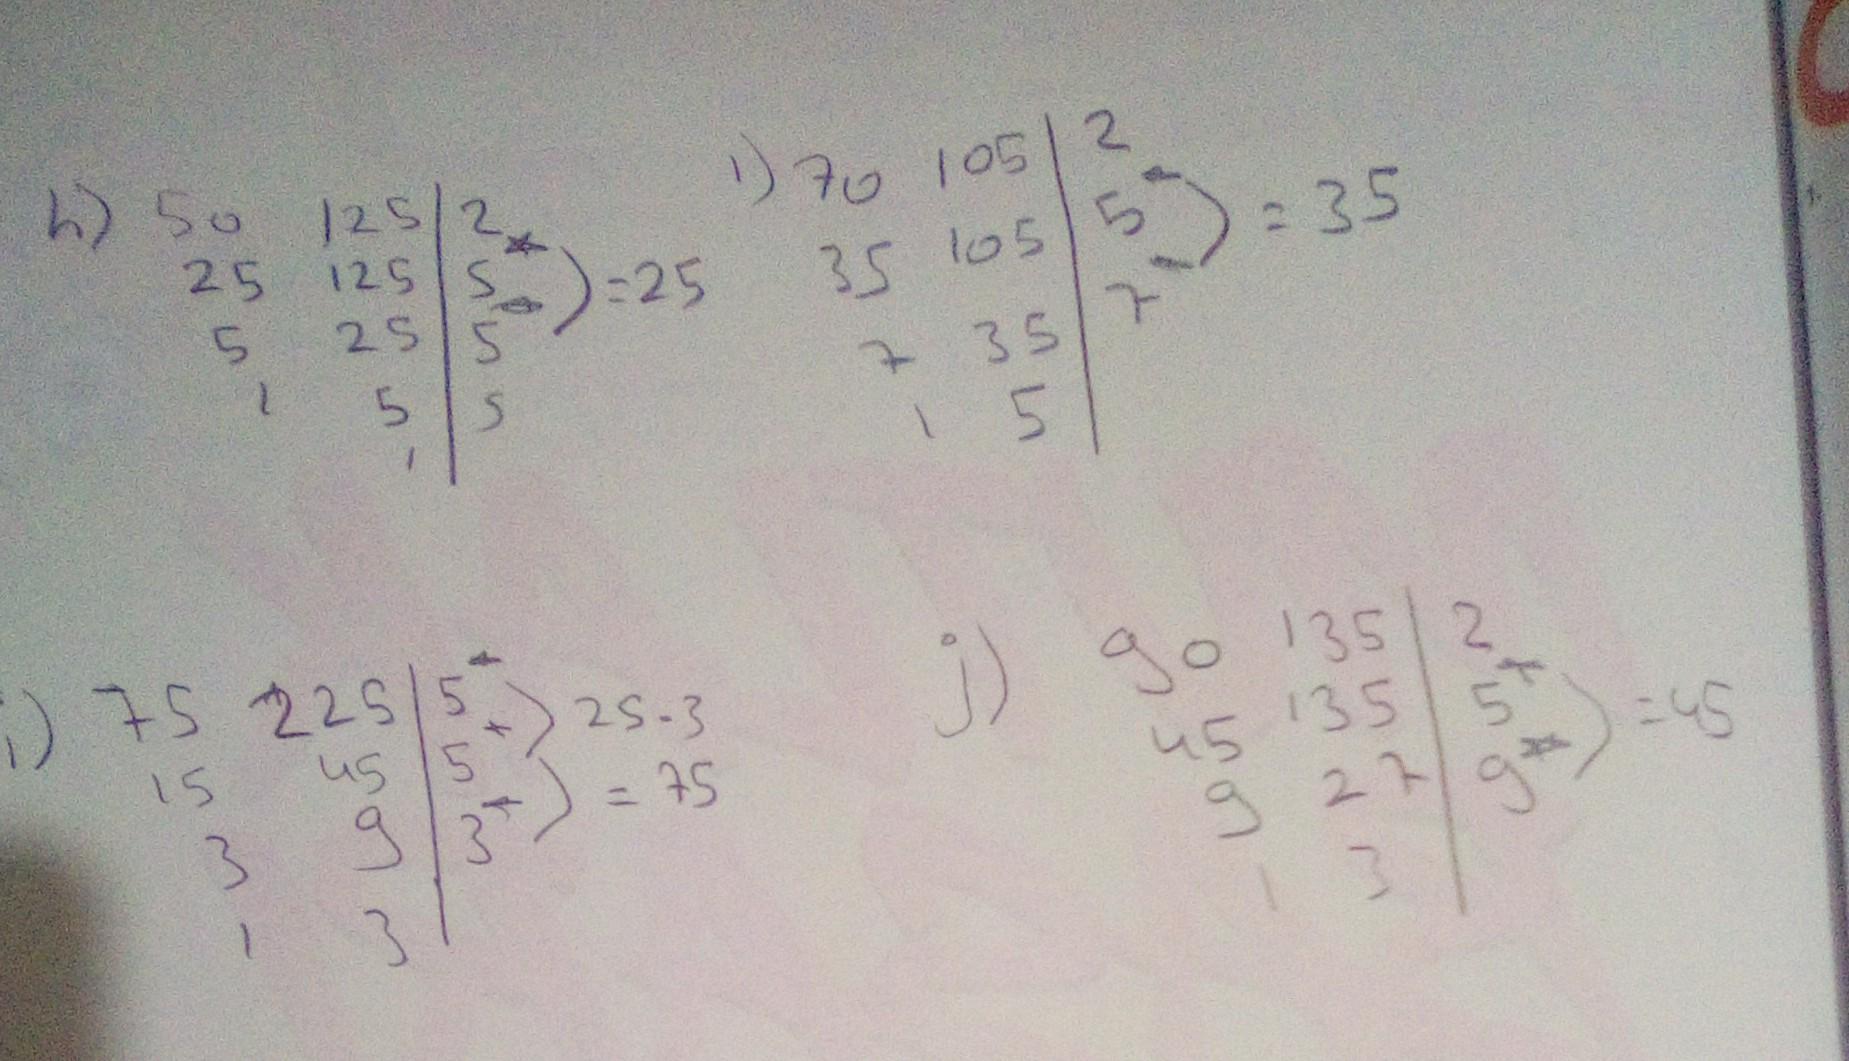 h) 50 125 | 2
25 125 | 5 ) = 25
5 25 | 5
1 5 | 5
1
ı) 70 105 | 2
35 105 | 5 ) = 35
7 35 | 7
1 5
i) 75 225 | 5 ) 25.3
15 45 | 5 ) = 75
3 9 | 3
1 3
j) 90 135 | 2
45 135 | 5 ) = 45
9 27 | 9
1 3